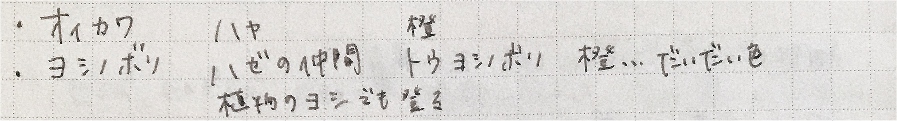 ・オイカワ ハヤ 橙
・ヨシノボリ ハゼの仲間 トウヨシノボリ 橙…だいだい色
植物のヨシでも登る